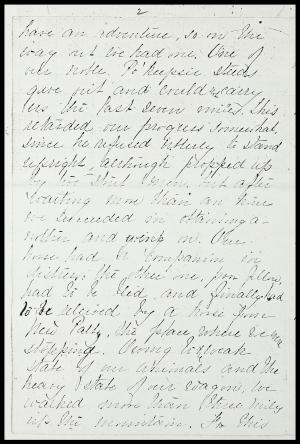 2
have an adventure, so on the
way out we had one. One of
our noble Po'keepsie steeds
gave out and could not carry
us the last seven miles. This
retarded our progress somewhat,
since he refused entirely to stand
upright, although propped up
by two stout men, but after
waiting more than an hour
we succeeded in obtaining a-
nother and went on. One
horse had a companion in
distress: the other one, poor fellow,
had to be bled, and finally had
to be relieved by a horse from
New Paltz, the place where we were
stopping. Owing to weak
state of our animals and the
heavy state of our wagon, we
walked more than three miles
up the mountain. In this